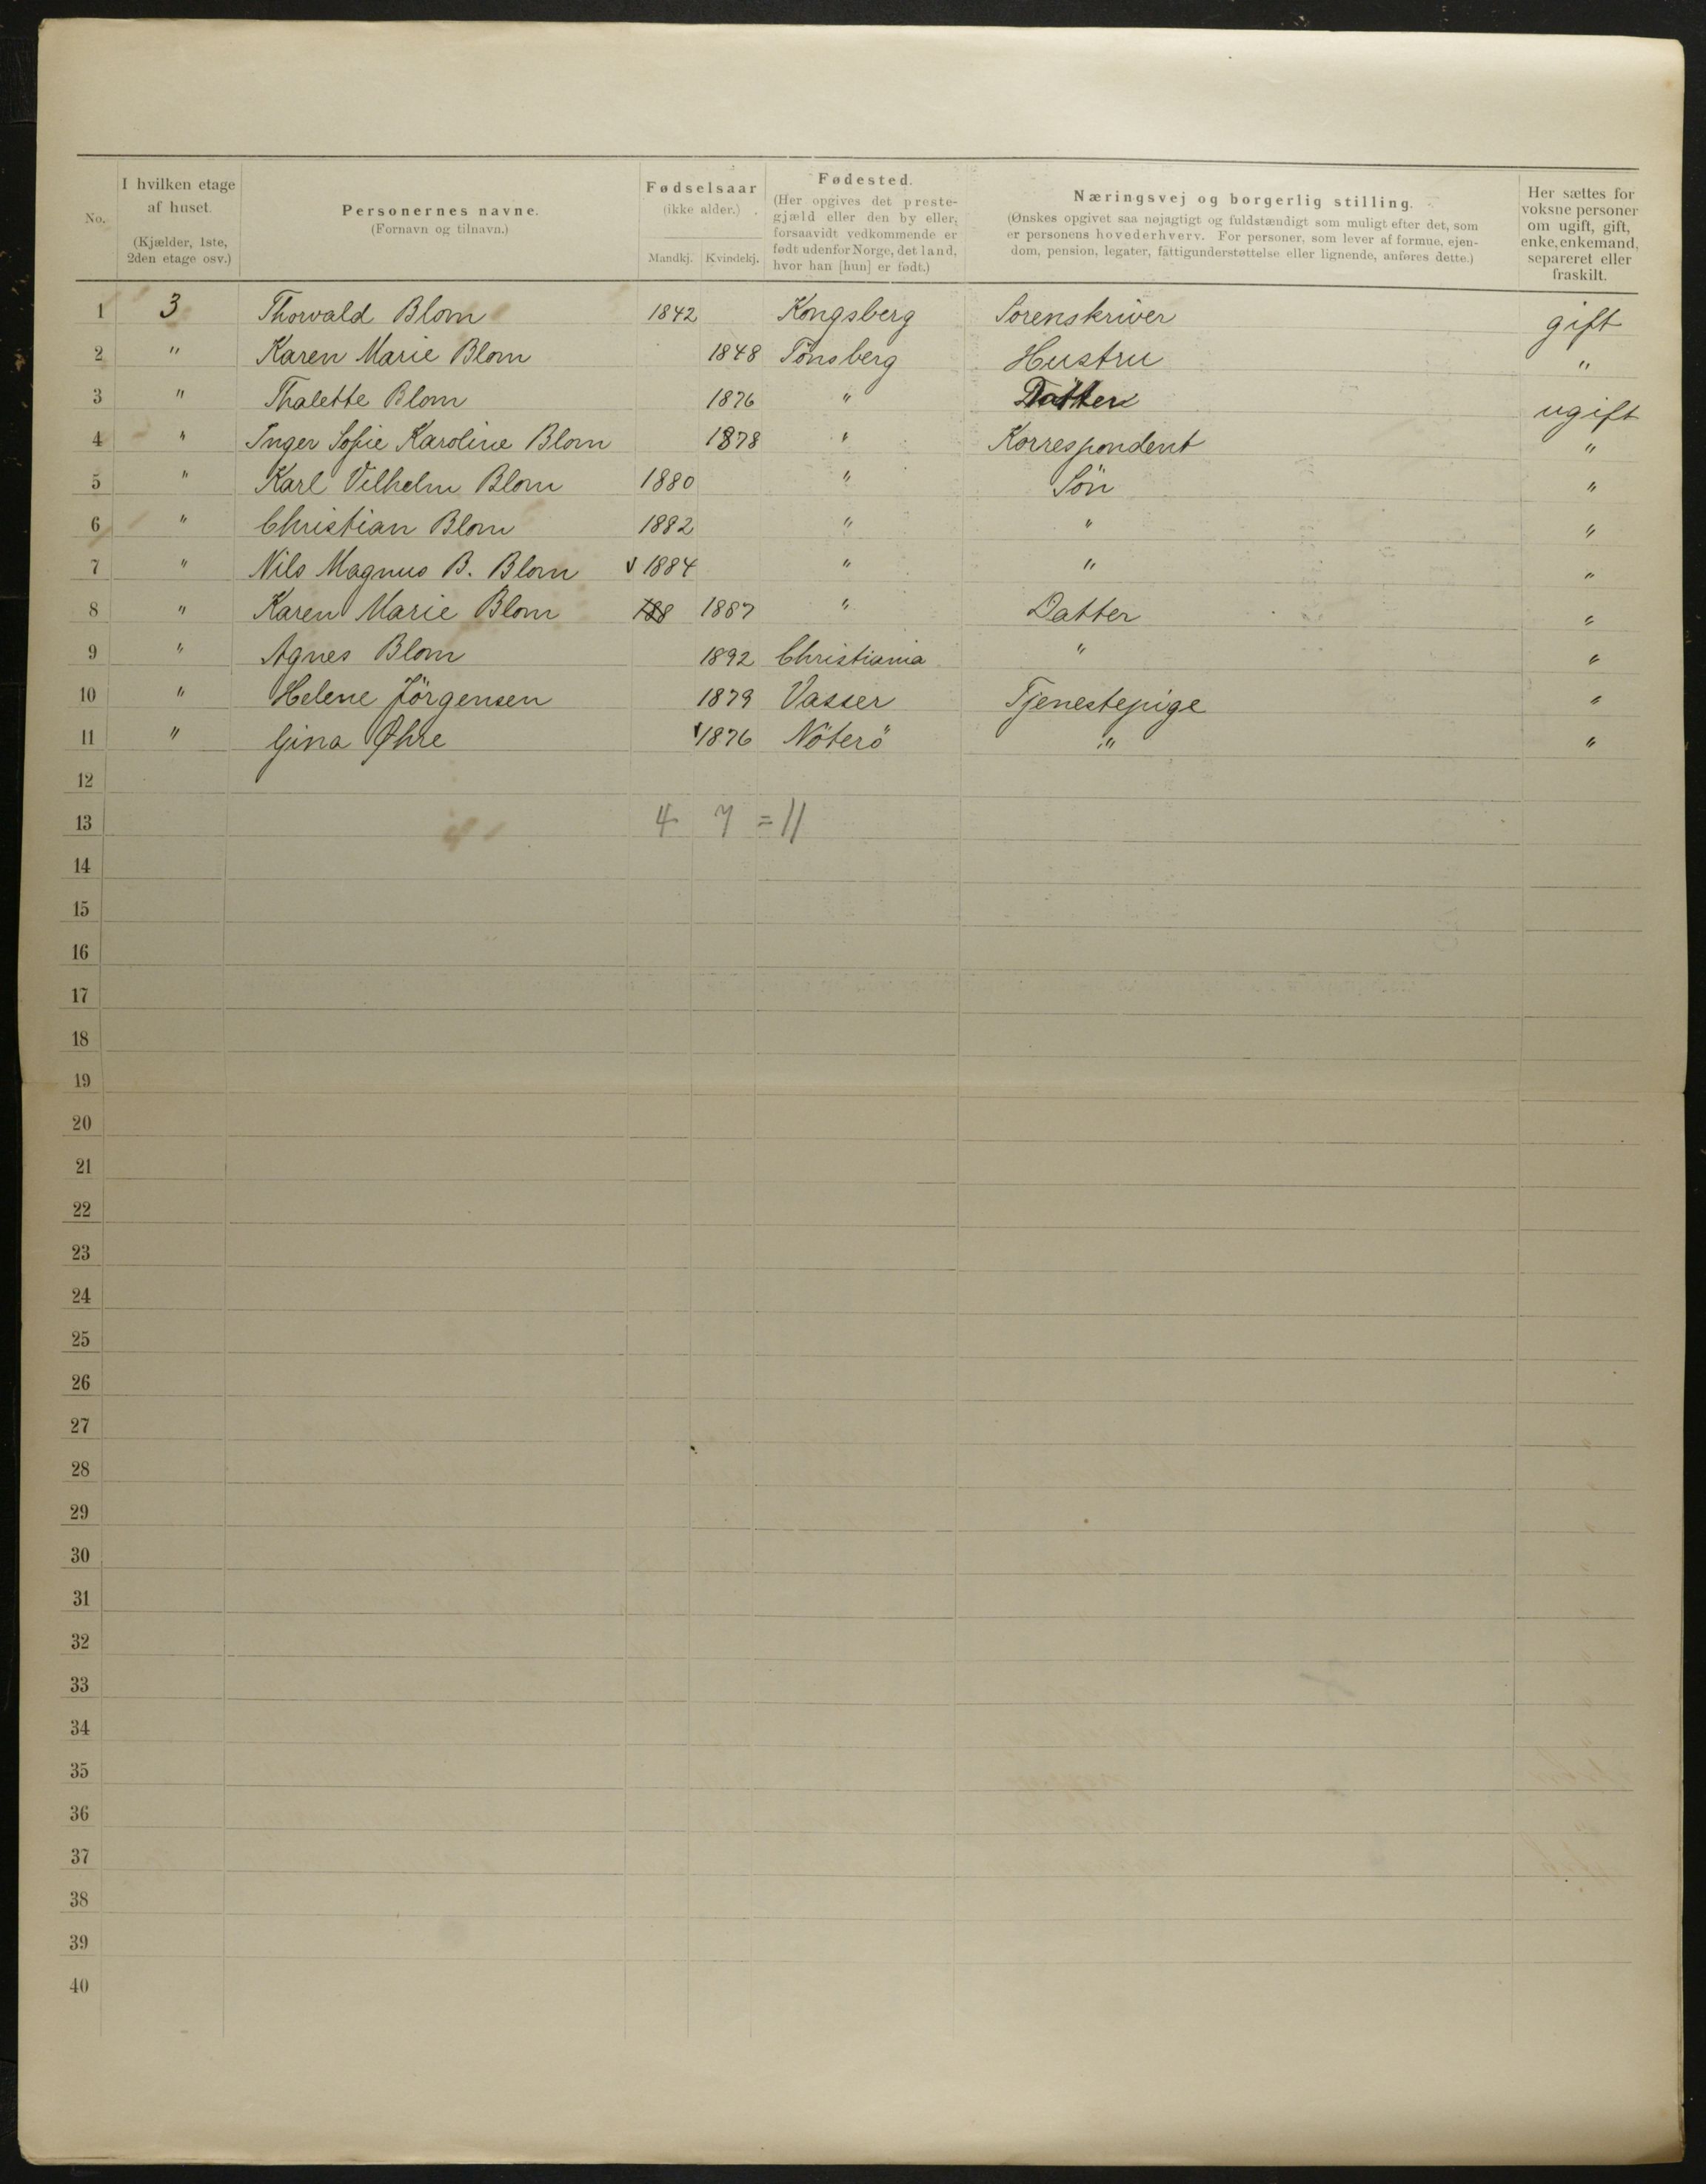 No.
I hvilken etage af huset.
(Kjælder, 1ste, 2den etage osv.)
Personernes navne.
(Fornavn og tilnavn.)
Fødselsaar
(ikke alder.)
Mandkj. Kvindekj.
Fødested.
(Her opgives det preste-
gjæld eller den by eller,
forsaavidt vedkommende er
født udenfor Norge, det land,
hvor han [hun] er født.)
Næringsvej og borgerlig stilling.
(Ønskes opgivet saa nøjagtigt og fuldstændigt som muligt efter det, som
er personens hovederhverv. For personer, som lever af formue, ejen-
dom, pension, legater, fattigunderstøttelse eller lignende, anføres dette.)
Her sættes for
voksne personer
om ugift, gift,
enke, enkemand,
separeret eller
fraskilt.
1 3 Thorvald Blom 1842 Kongsberg Sorenskriver gift
2 " Karen Marie Blom 1848 Tönsberg Hustru "
3 " Thalette Blom 1876 " Datter ugift
4 " Inger Sofie Karoline Blom 1878 " Korrespondent "
5 " Karl Vilhelm Blom 1880 " Sön "
6 " Christian Blom 1882 " " "
7 " Nils Magnus B. Blom 1884 " " "
8 " Karen Marie Blom 188 1887 " Datter "
9 " Agnes Blom 1892 Christiania " "
10 " Helene Jörgensen 1879 Vasser Tjenestepige "
11 " Gina Øhre 1876 Nöterö " "
12
13 4 7 = 11
14
15
16
17
18
19
20
21
22
23
24
25
26
27
28
29
30
31
32
33
34
35
36
37
38
39
40